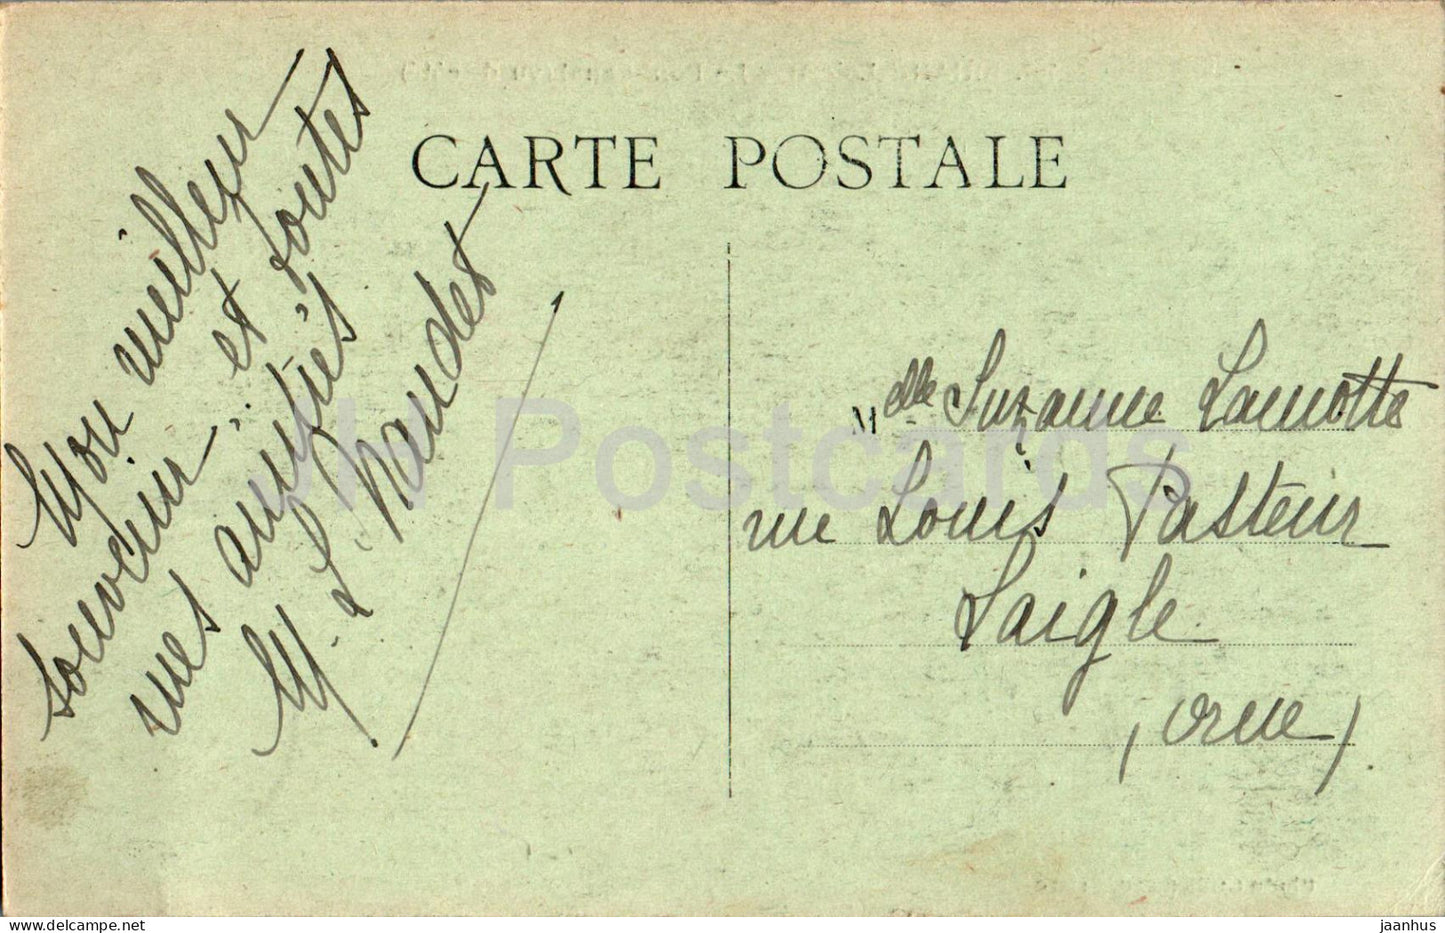 CARTE POSTALE
Mon meilleur
souvenir et toutes
mes amitiés
M. L. Naudet
Mdlle Suzanne Lamotte
rue Louis Pasteur
Laigle
(Orne)
JH Postcards
jaanhus